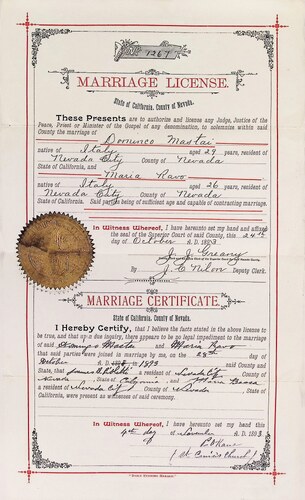 No. 1267
MARRIAGE LICENSE.
State of California, County of Nevada.
These Presents are to authorize and license any Judge, Justice of the
Peace, Priest or Minister of the Gospel of any denomination, to solemnize within said
County the marriage of
Domineco Mastai
native of Italy aged 29 years, resident of
Nevada City County of Nevada
State of California, and
Maria Ravo
native of Italy aged 26 years, resident of
Nevada City County of Nevada
State of California. Said parties being of sufficient age and capable of contracting marriage.
In Witness Whereof, I have hereunto set my hand and affixed the
seal of the Superior Court of said County, this 24th
day of October A. D. 1893
J. J. Greany
By J. C. Nilon Deputy Clerk.
MARRIAGE CERTIFICATE.
State of California, County of Nevada.
I Hereby Certify, that I believe the facts stated in the above license to
be true, and that upon due inquiry, there appears to be no legal impediment to the marriage
of said and Maria Ravo
that said parties were joined in marriage by me, on the 28th day of
October A. D. 1893
State of California, and
a resident of Nevada City County of Nevada, State of
California, were present as witnesses of said ceremony.
In Witness Whereof, I have hereunto set my hand this
4th day of November A. D. 1893